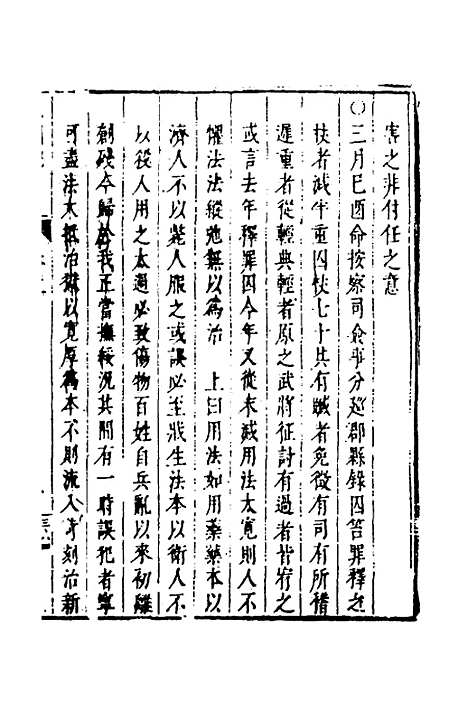 害之非付任之意
○三月己酉命按察司僉事分巡郡縣錄囚笞罪釋之
杖者減半重囚杖七十其有贓者免徵有司有所稽
遲重者從輕典輕者原之武將征討有過者皆宥之
或言去年釋罪囚今年又從末減用法太寬則人不
懼法法縱弛無以為治　上曰用法如用藥藥本以
濟人不以斃人服之或誤必至戕生法本以衛人不
以殺人用之太過必致傷物百姓自兵亂以來初離
創殘今歸於我正當撫綏況其間有一時誤犯者寧
可盡法大抵治獄以寬厚為本不則流入苛刻治新